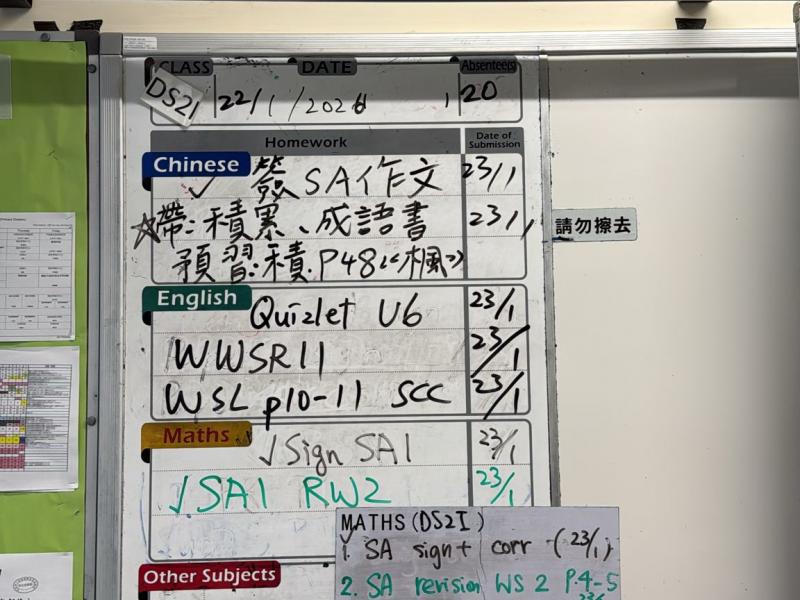 CLASS DATE Absentee(s)
DS2I 22/1/2026 20
Homework Date of Submission
Chinese
✓ 簽 SA作文 23/1
☆帶:積累、成語書 23/1
請勿擦去
預習:積.P48《楓》
English
Quizlet U6 23/1
WWSR11 23/1
WSL p10-11 SCC 23/1
Maths
√Sign SA1 23/1
√SA1 RW2 23/1
MATHS (DS2I)
1. SA sign + corr -(23/1)
2. SA revision WS 2 P.4-5
Other Subjects